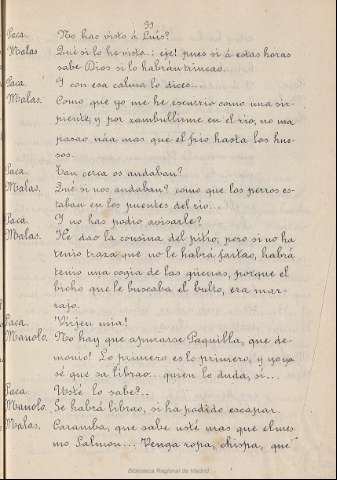 31
Paca. No has visto á Luis?
Malas Qué si lo he visto..; eje! pues si á estas horas
sabe Dios si lo habrán trincao.
Paca. Y con esa calma lo dices...
Malas. Como que yo me he escurrio como una sir-
piente, y por zambullirme en el rio, no ma
pasao náa mas que el frio hasta los hue-
sos.
Paca. Tan cerca os andaban?
Malas. Qué si nos andaban? como que los perros es-
taban en los puentes del rio...
Paca. Y no has podio avisarle?
Malas. He dao la consina del pitio; pero si no ha
tenio traza que no le habrá fartao, habrá
tenio una sogia de las güenas, porque el
bicho que le buscaba el bulto, era mar-
rajo.
Paca. Virjen mia!
Manolo. No hay que apurarse Paquilla, que de-
monio! Lo primero es lo primero, y yo ya
sé que sa librao... quien lo duda, si...
Paca. Usté lo sabe?..
Manolo. Se habrá librao, si ha podido escapar.
Malas. Caramba, que sabe usté mas que el mes-
mo Salmon... Venga ropa, chispa, que
Biblioteca Regional de Madrid